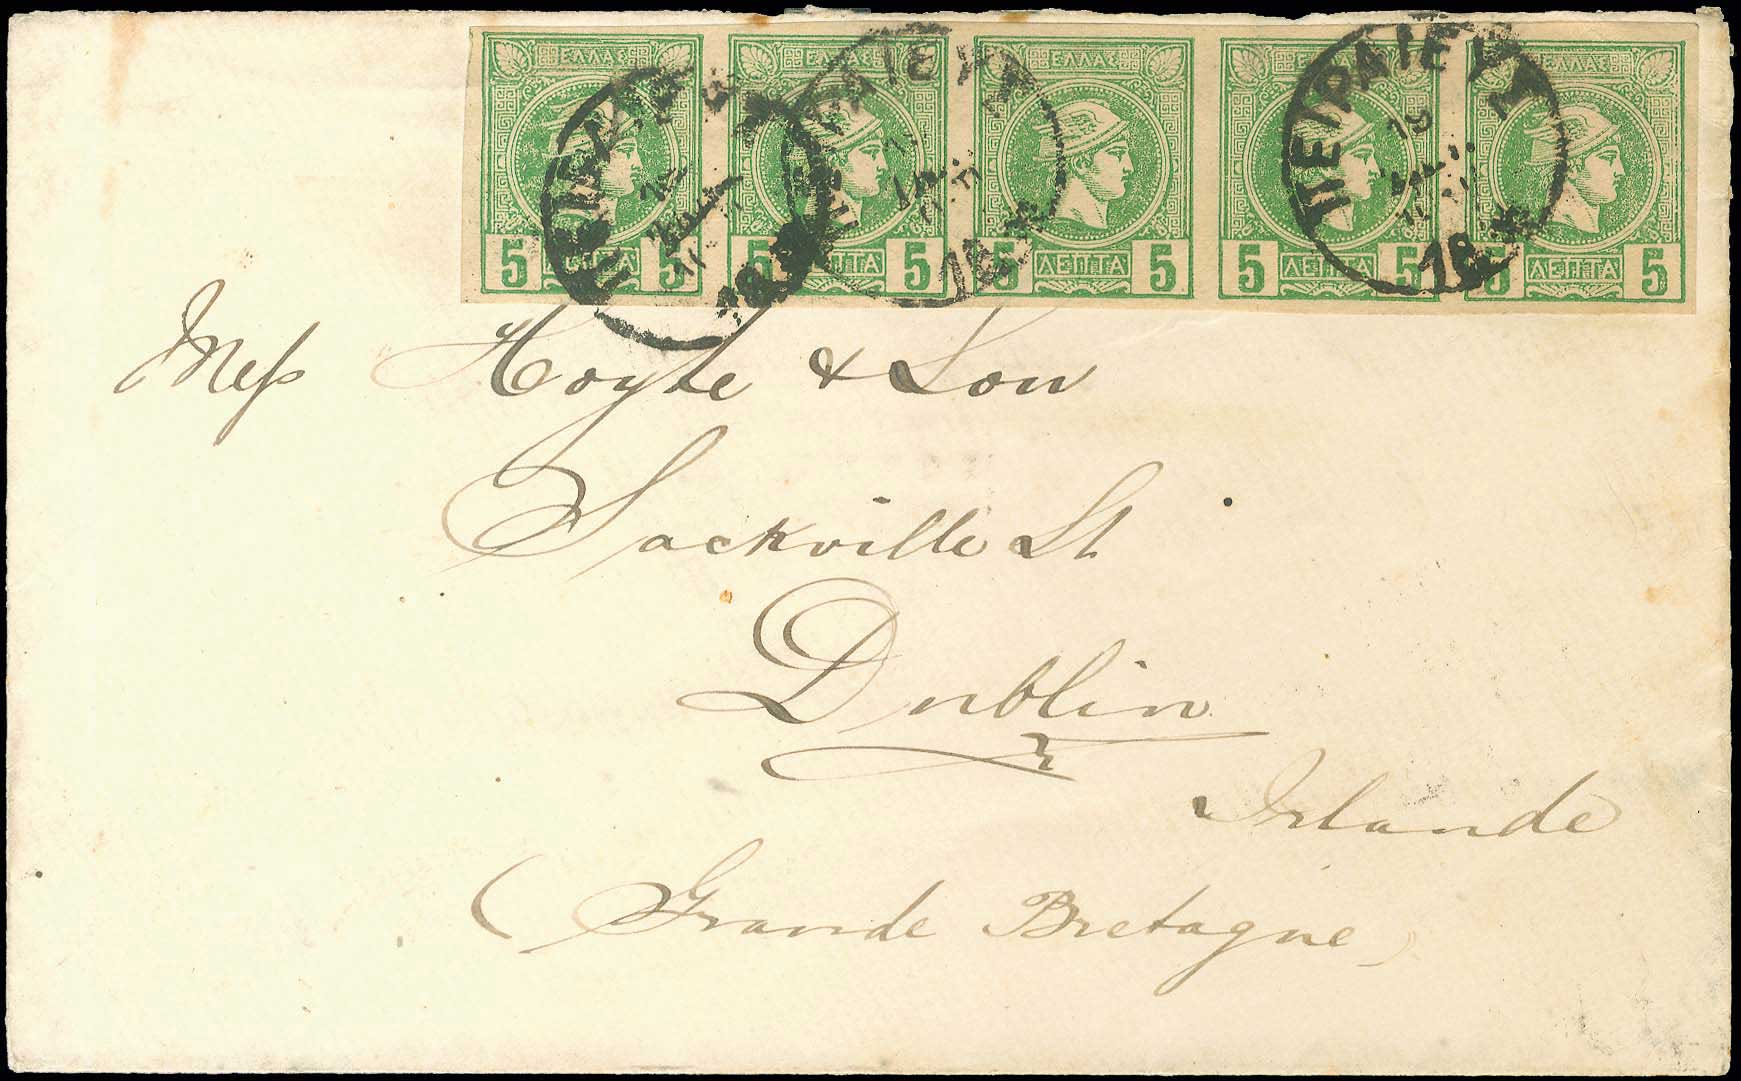 ΕΛΛΑΣ ΕΛΛΑΣ ΕΛΛΑΣ ΕΛΛΑΣ ΕΛΛΑΣ
ΠΕΙΡΑΙΕΥΣ
19
18
5 ΛΕΠΤΑ 5 5 ΛΕΠΤΑ 5 5 ΛΕΠΤΑ 5 5 ΛΕΠΤΑ 5 5 ΛΕΠΤΑ 5
Mess Hoyte & Son
Sackville St
Dublin
Irlande
(Grande Bretagne)